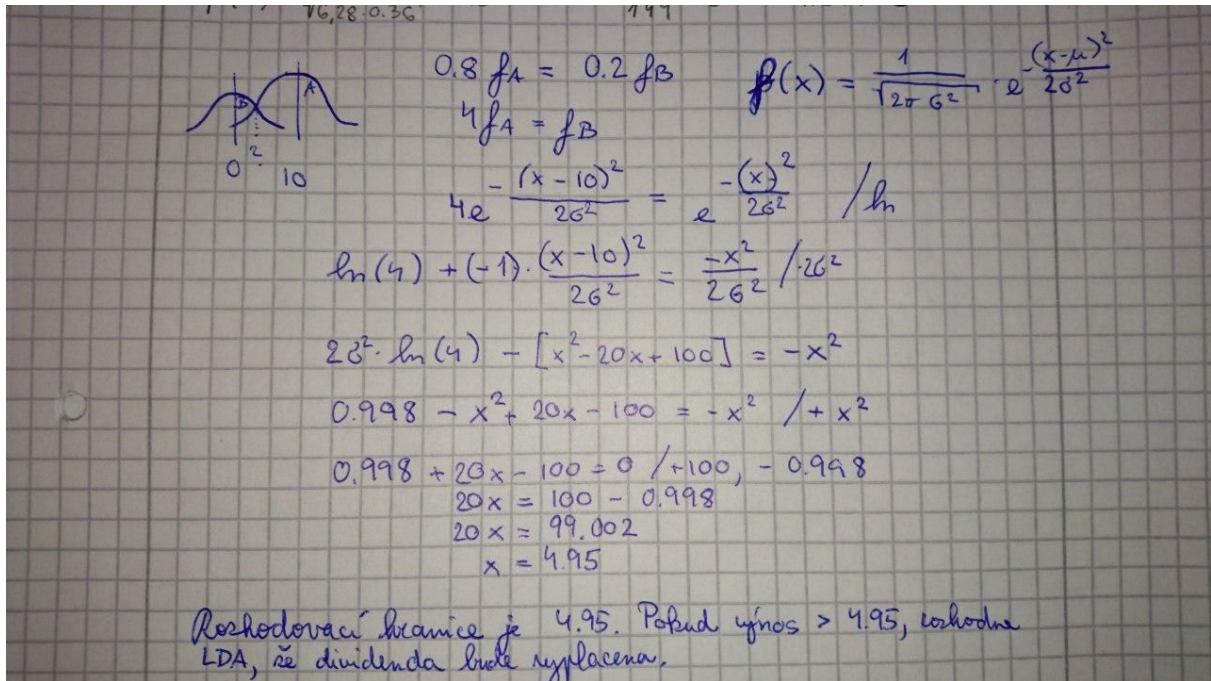 √6,28·0.36
144
0.8 fA = 0.2 fB
f(x) = 1/√(2πσ²) · e^(-(x-μ)²/2σ²)
B A
4fA = fB
0 2 10
4e^(-(x-10)²/2σ²) = e^(-(x)²/2σ²) / ln
ln(4) + (-1)·(x-10)²/2σ² = -x²/2σ² /·2σ²
2σ²·ln(4) - [x²-20x+100] = -x²
0.998 - x² + 20x - 100 = -x² /+x²
0.998 + 20x - 100 = 0 /+100, - 0.998
20x = 100 - 0.998
20x = 99.002
x = 4.95
Rozhodovací hranice je 4.95. Pokud výnos > 4.95, rozhodne
LDA, že dividenda bude vyplacena.